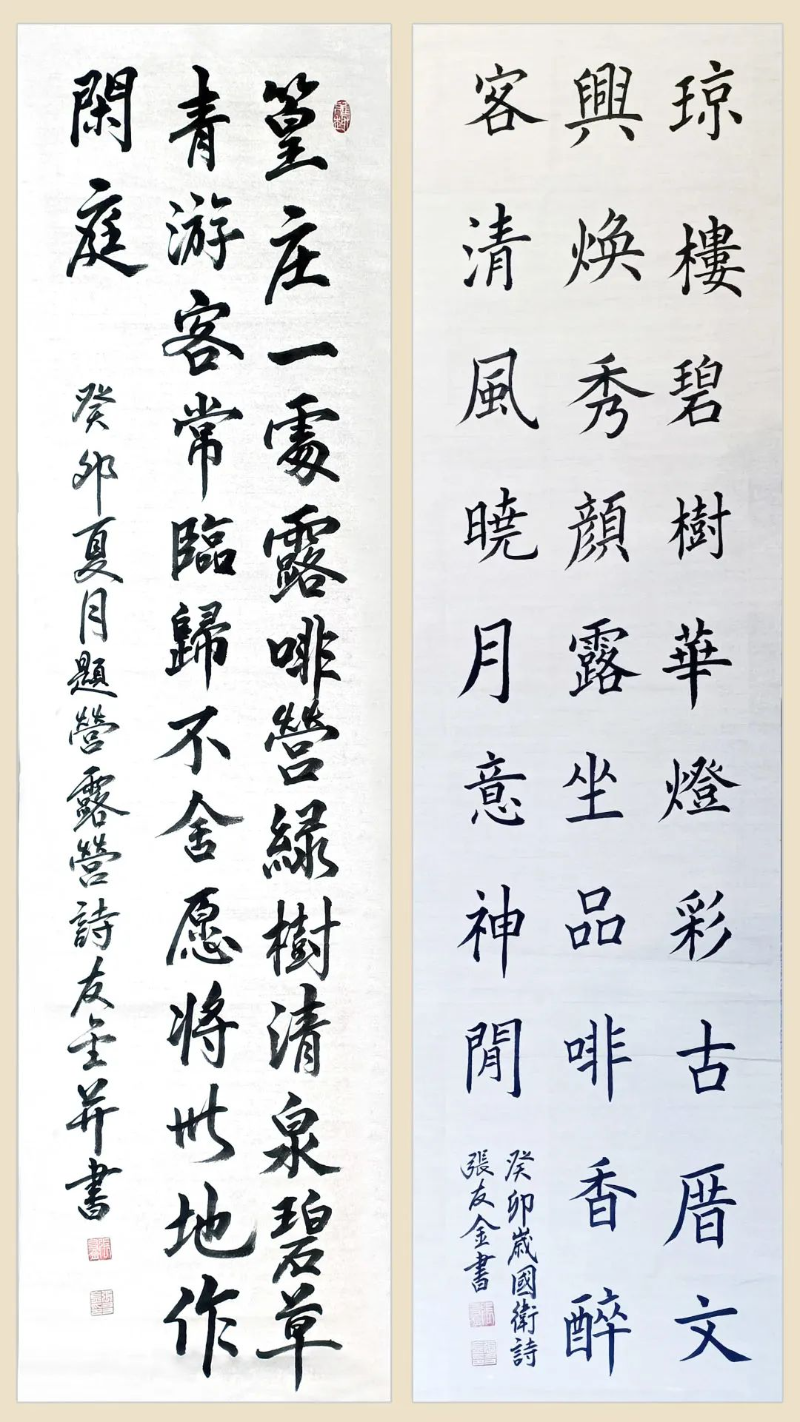 琼樓碧樹華燈彩古厝文
興焕秀顏露坐品啡香醉
客清風暁月意神閒
癸卯歲國衛詩
張友金書
篁庄一處露啡營緑樹清泉碧草
青游客常臨歸不舍愿將此地作
閑庭
癸卯夏月題營露營詩友金并書